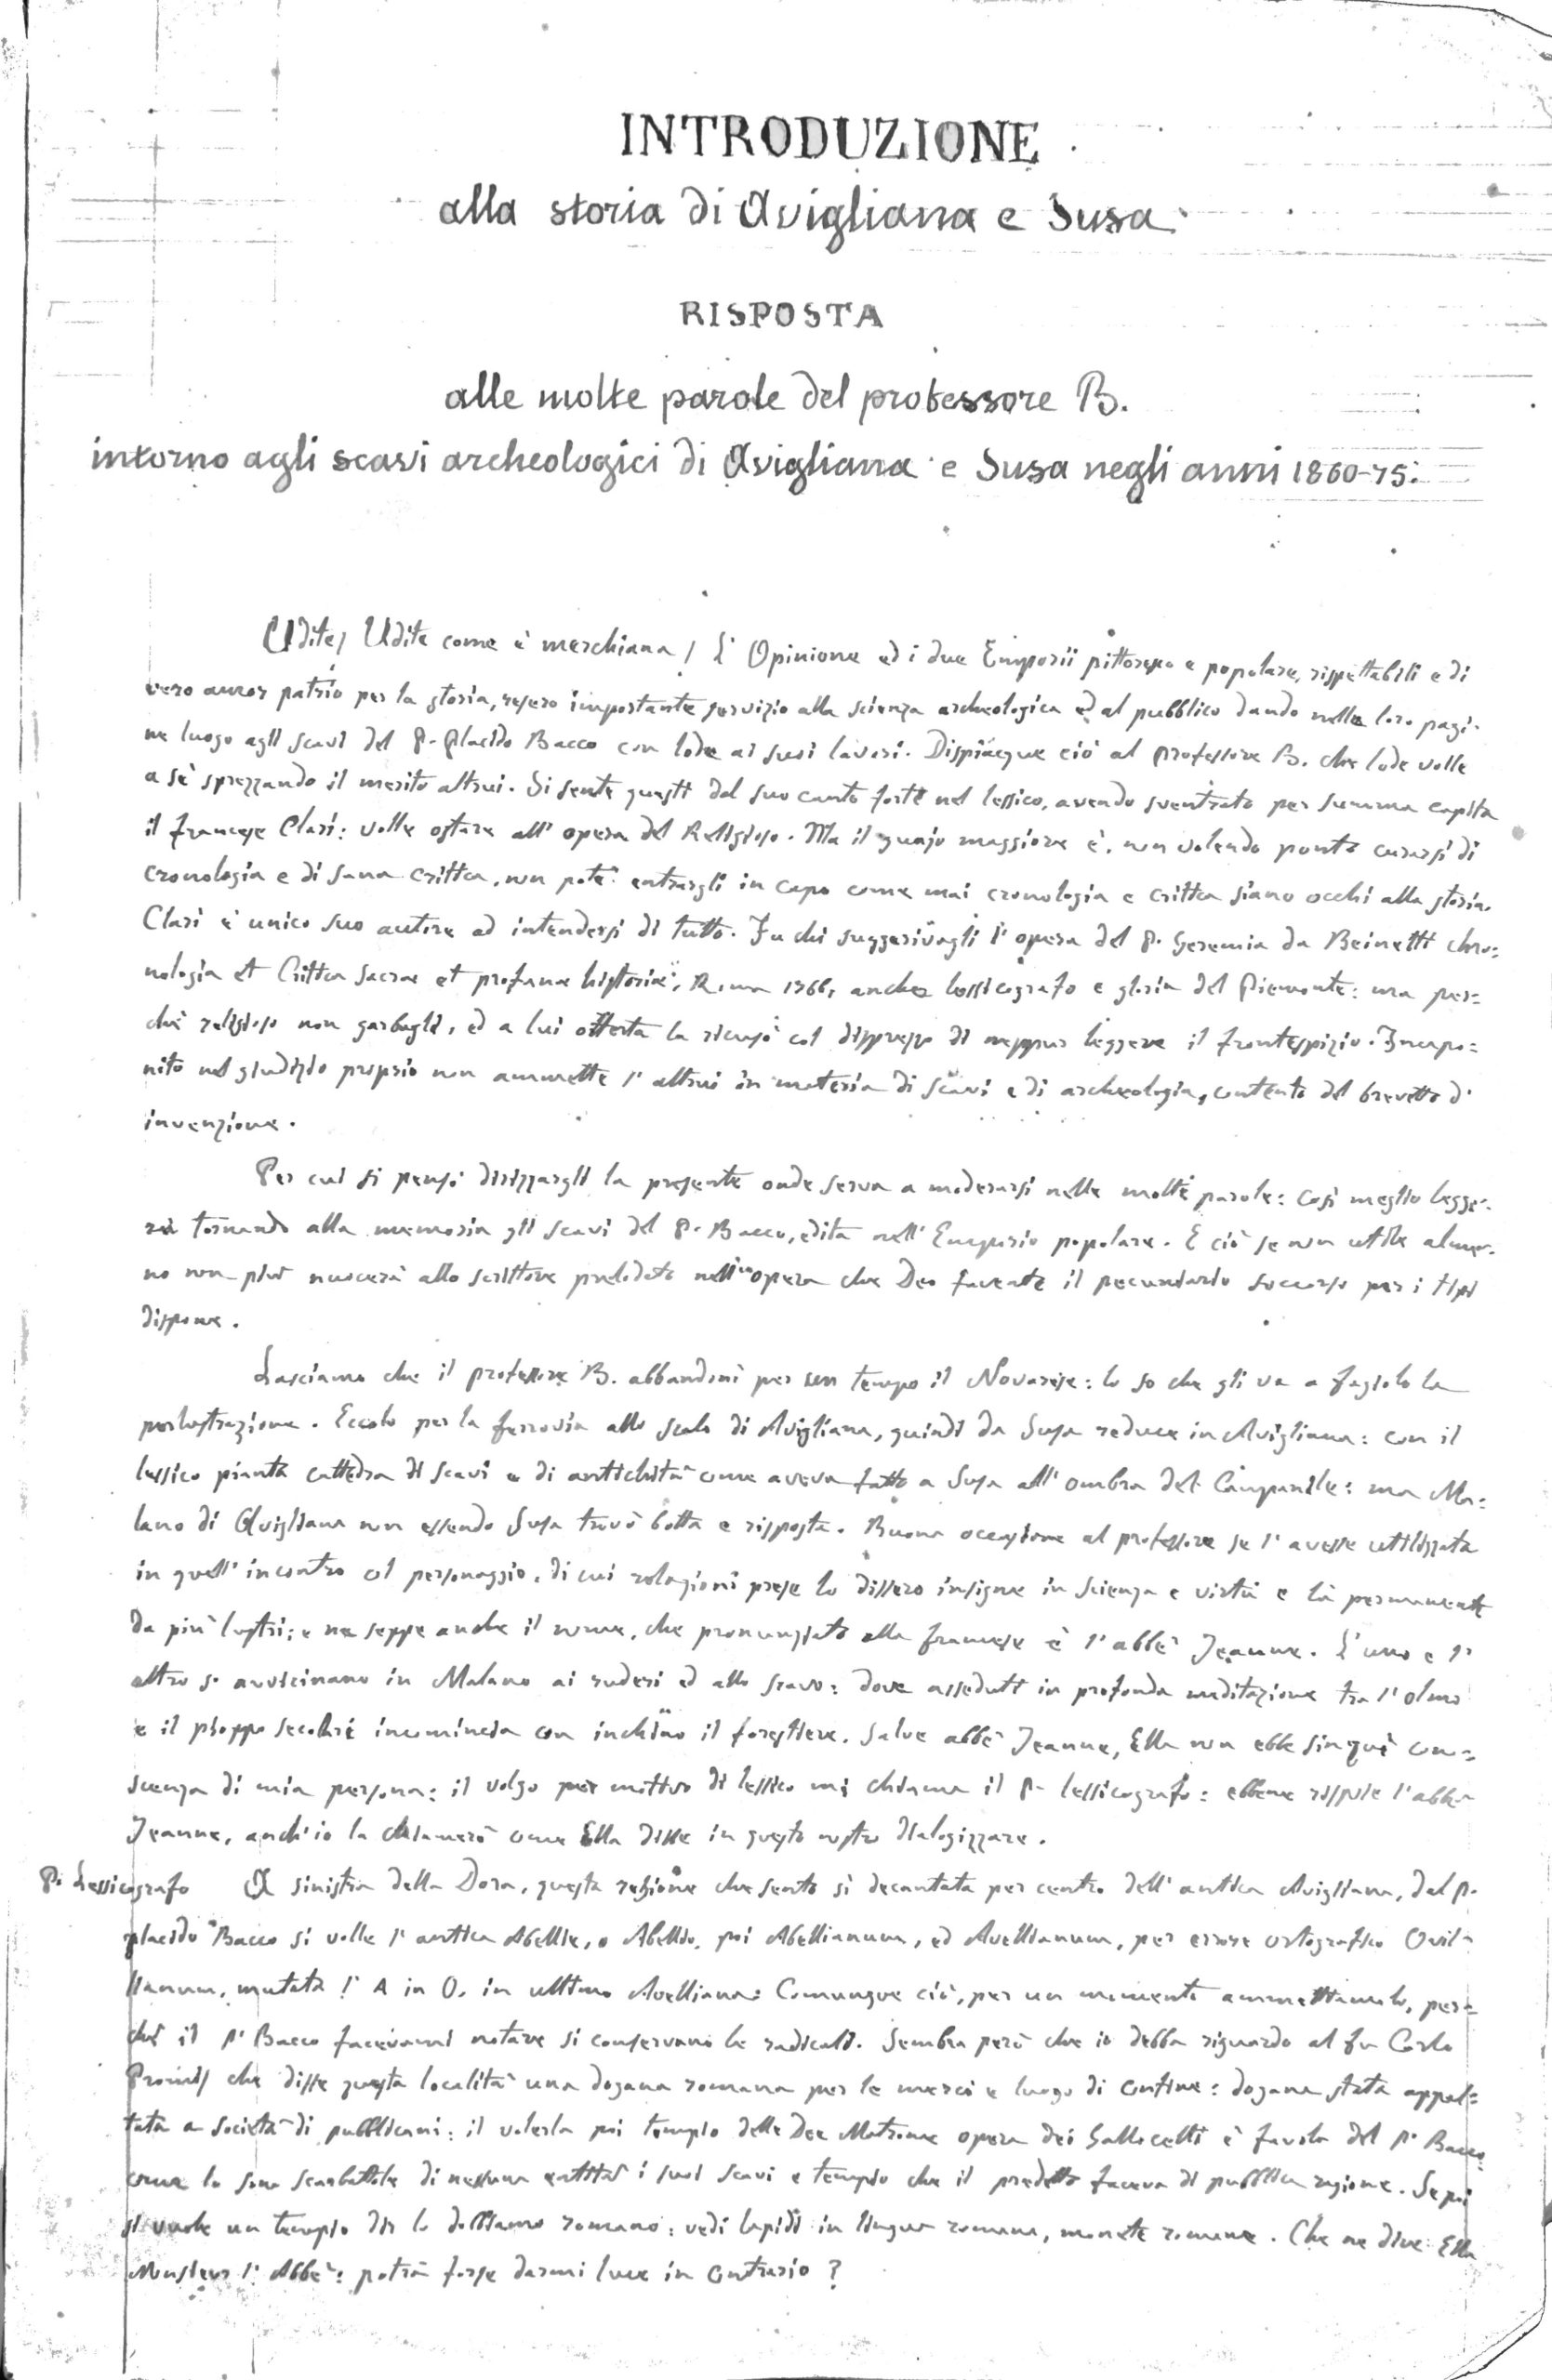 INTRODUZIONE
alla storia di Avigliana e Susa.
RISPOSTA
alle molte parole del professore B.
intorno agli scavi archeologici di Avigliana e Susa negli anni 1860-75.
Udite/ Udite come è marchiana! L'Opinione ed i due Emporii pittoresco e popolare, rispettabili e di
vero amor patrio per la storia, resero importante servizio alla scienza archeologica ed al pubblico dando nelle loro pagi-
ne luogo agli scavi del P. Placido Bacco con lode ai suoi lavori. Dispiacque ciò al professore B. che lode volle
a sè sprezzando il merito altrui. Si sente questi dal suo canto forte nel lessico, avendo sventrato per summa capita
il francese Clari: volle ostare all'opera del Religioso. Ma il guajo maggiore è, non volendo punto curarsi di
cronologia e di sana critica, non potè entrargli in capo come mai cronologia e critica siano occhi alla storia.
Clari è unico suo autore ad intendersi di tutto. Fu chi suggerivagli l'opera del P. Geremia da Beinetti chro=
nologia et Critica sacrae et profanae historiae, Roma 1766, anche lessicografo e gloria del Piemonte: ma per=
chè religioso non garbagli, ed a lui offerta la ricusò col disprezzo di neppur leggere il frontespizio. Incapo=
nito nel giudizio proprio non ammette l'altrui in materia di scavi e di archeologia, contento del brevetto d'
invenzione.
Per cui si pensò dirizzargli la presente onde serva a moderarsi nelle molte parole: così meglio legge-
rà tornando alla memoria gli scavi del P. Bacco, edita nell'Emporio popolare. E ciò se non utile alme-
no non più nuocerà allo scrittore prelodato nell'opera che Deo favente il pecuniario soccorso per i tipi
dispone.
Lasciamo che il professore B. abbandoni per un tempo il Novarese: lo so che gli va a fagiolo la
perlustrazione. Eccolo per la ferrovia allo scalo di Avigliana, quindi da Susa reduce in Avigliana: con il
lessico pianta cattedra di scavi e di antichità come aveva fatto a Susa all'ombra del Campanile: ma Ma=
lano di Avigliana non essendo Susa trovò botta e risposta. Buona occasione al professore se l'avesse utilizzata
in quell'incontro col personaggio, di cui relazioni prese lo dissero insigne in scienza e virtù e là permanente
da più lustri; e ne seppe anche il nome, che pronunziato alla francese è l'abbè Jeanne. L'uno e l'
altro s'avvicinano in Malano ai ruderi ed allo scavo: dove asseduti in profonda meditazione tra l'olmo
e il pioppo secolari incomincia con inchino il forestiere. Salve abbè Jeanne, Ella non ebbe sin qui cono=
scenza di mia persona: il volgo per motivo di lessico mi chiama il P. lessicografo: ebbene rispose l'abbè
Jeanne, anch'io la chiamerò come Ella disse in questo nostro dialogizzare.
P. Lessicografo A sinistra della Dora, questa regione che sento sì decantata per centro dell'antica Avigliana, dal P.
Placido Bacco si volle l'antica Abellie, o Abellio, poi Abellianum, ed Avellianum, per errore ortografico Ovil-
lianum, mutata l'A in O, in ultimo Avelliana: Comunque ciò, per un momento ammettiamolo, per=
chè il P. Bacco facevami notare si conservano le radicali. Sembra però che io debba riguardo al fu Carlo
Promis che disse questa località una dogana romana per le merci e luogo di confine: dogana stata appal=
tata a società di pubblicani: il volerla poi tempio delle Dee Matrone opera dei Gallo celti è favola del P. Bacco
come lo sono scarabattole di nessuna entità i suoi scavi e tempio che il predetto faceva di pubblica ragione. Se poi
si vuole un tempio dir lo dobbiamo romano: vedi lapidi in lingua romana, monete romane. Che ne dice Ella
Monsieur l'Abbè: potrà forse darmi luce in contrario?